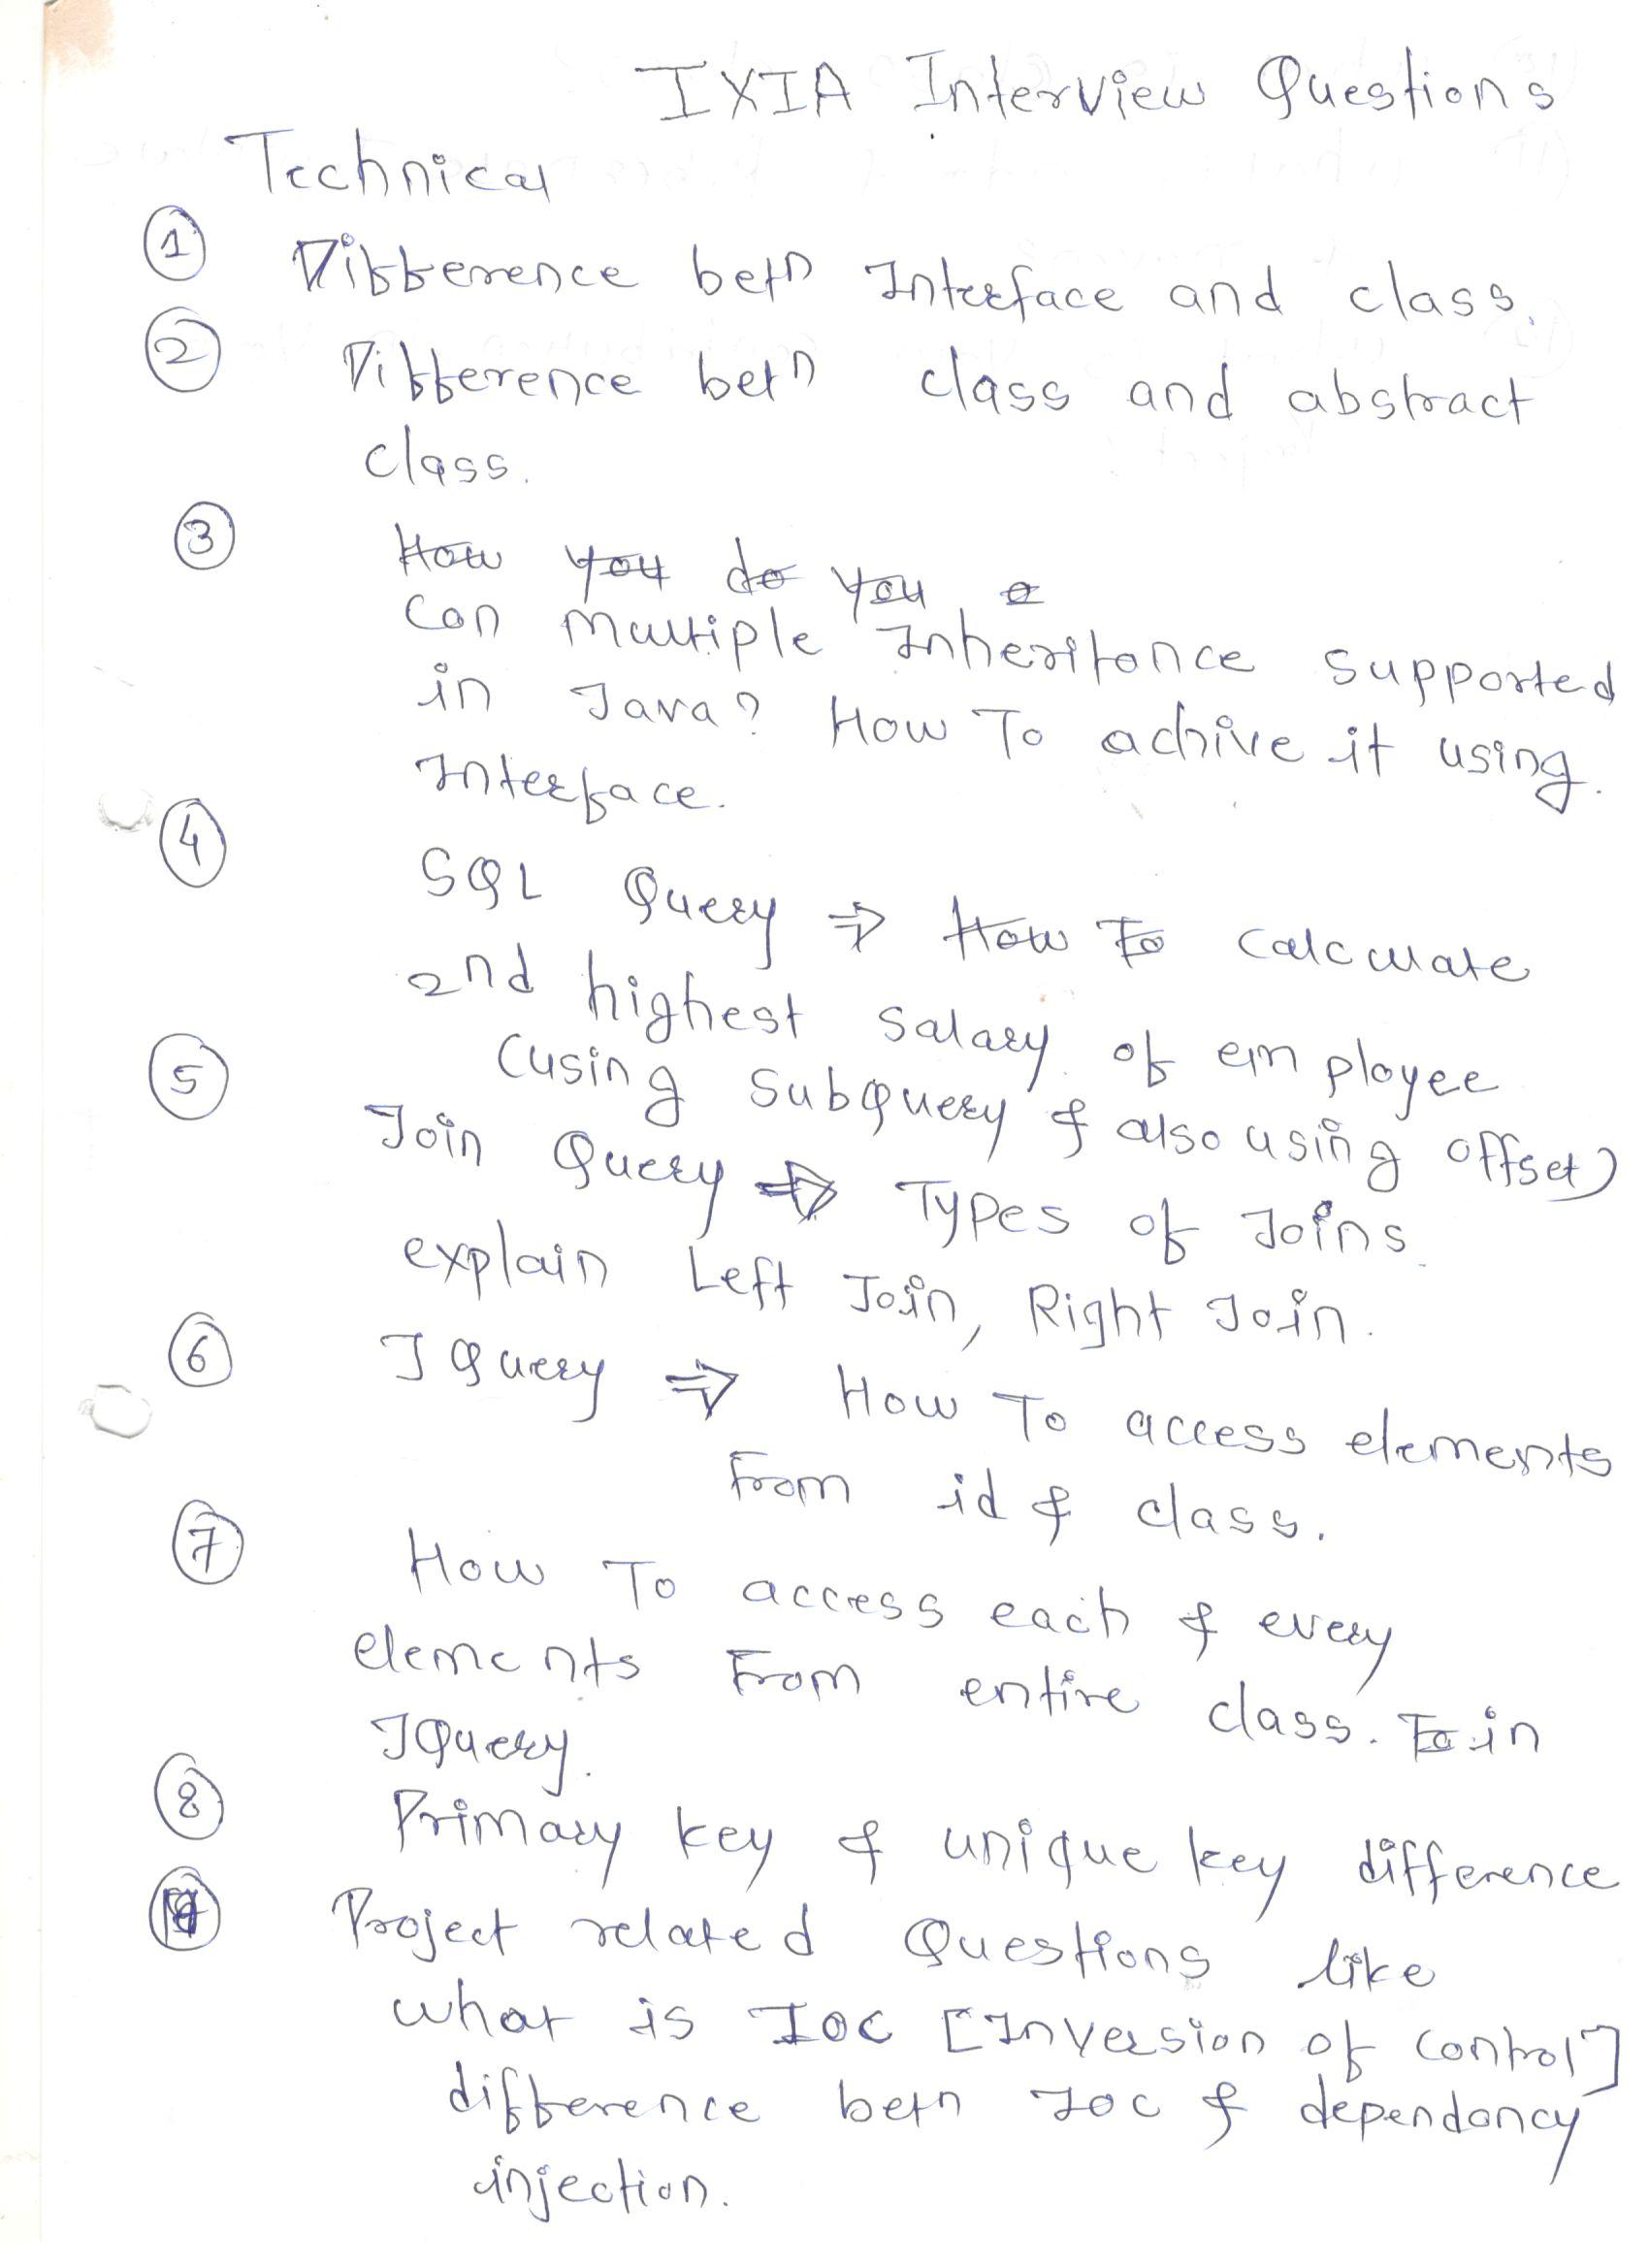 IXIA Interview Questions
Technical
① Difference betn Interface and class.
② Difference betn class and abstract
class.
③ How you do you
Can Multiple Inheritance supported
in Java? How To achive it using
Interface.
④ SQL Query ⇒ How To calculate
2nd highest salary of employee
(using subquery & also using offset)
⑤ Join Query ⇒ Types of Joins
explain Left Join, Right Join.
⑥ JQuery ⇒ How To access elements
From id & class.
⑦ How To access each & every
elements From entire class. To in
JQuery.
⑧ Primary key & unique key difference
⑨ Project related Questions like
what is IOC [Inversion of control]
difference betn IOC & dependancy
injection.